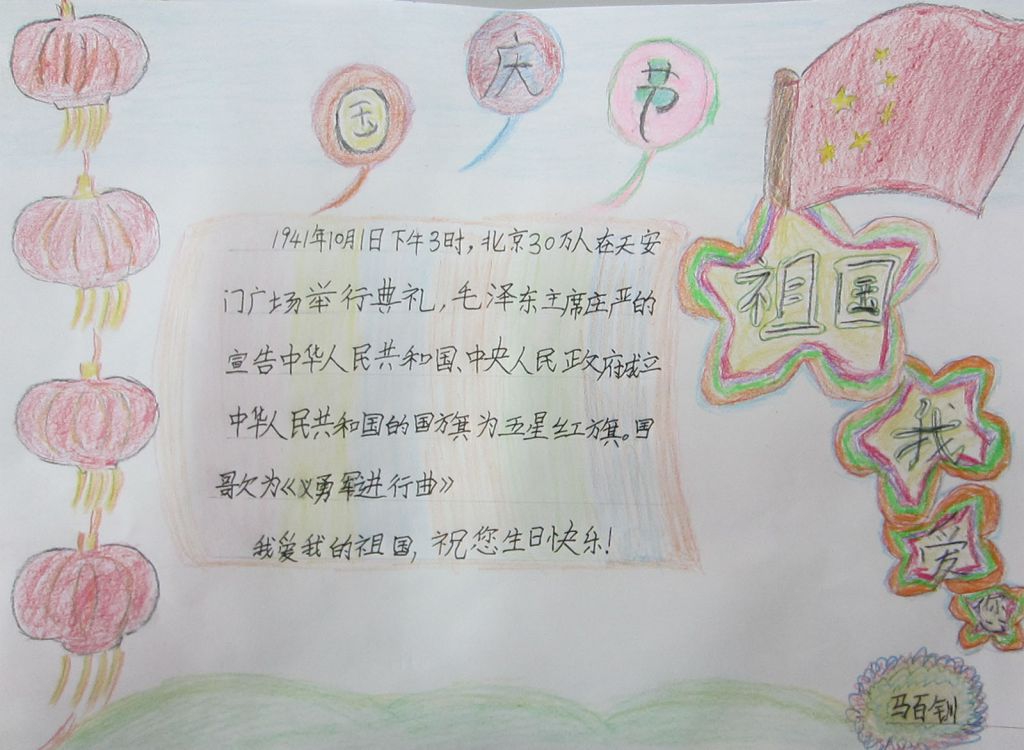 国庆节
1941年10月1日下午3时,北京30万人在天安
门广场举行典礼,毛泽东主席庄严的
宣告中华人民共和国、中央人民政府成立
中华人民共和国的国旗为五星红旗。国
歌为《义勇军进行曲》
我爱我的祖国,祝您生日快乐!
祖国
我
爱
您
马百钏